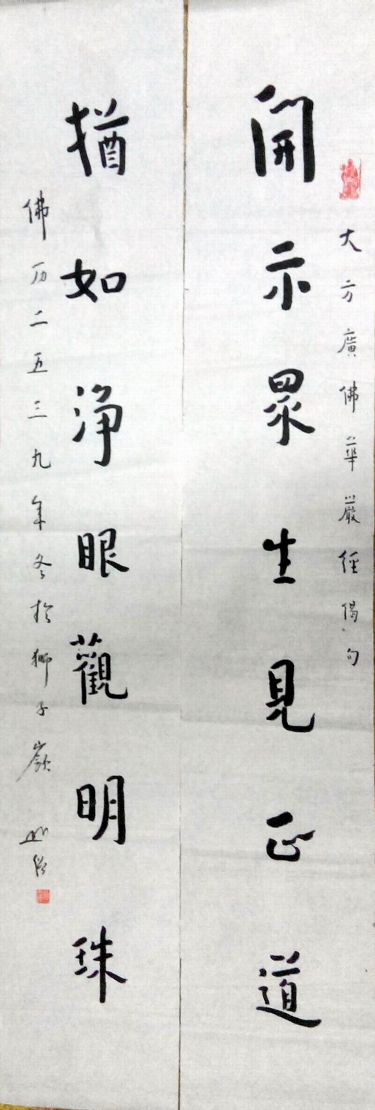 大方廣佛華嚴經偈句
開示眾生見正道
猶如淨眼觀明珠
佛历二五三九年冬於獅子嶺